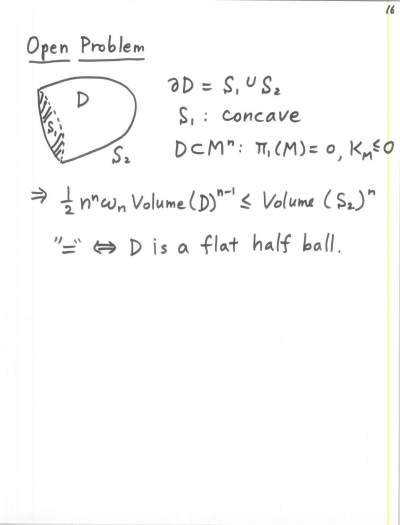 16
Open Problem
D
S₁
S₂
∂D = S₁ ∪ S₂
S₁ : concave
D⊂Mⁿ: π₁(M) = 0, K_M ≤ 0
⇒ ½ nⁿωₙ Volume(D)ⁿ⁻¹ ≤ Volume (S₂)ⁿ
"=" ⇔ D is a flat half ball.